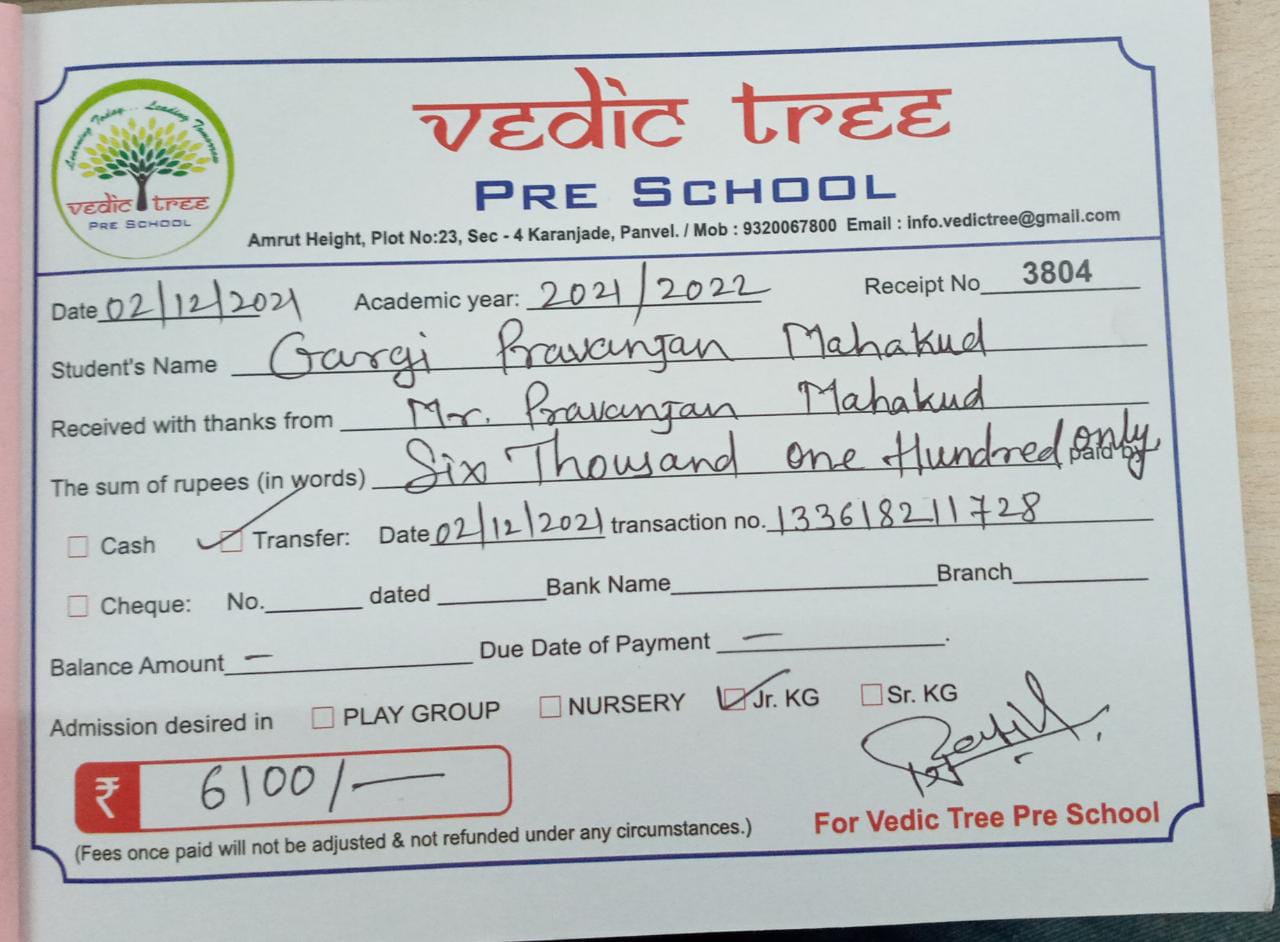 Learning Today... Leading Tomorrow
vedic tree
PRE SCHOOL
vedic tree
PRE SCHOOL
Amrut Height, Plot No:23, Sec - 4 Karanjade, Panvel. / Mob : 9320067800 Email : info.vedictree@gmail.com
Date 02/12/2021 Academic year: 2021/2022 Receipt No 3804
Student's Name Gargi Pravanjan Mahakud
Received with thanks from Mr. Pravanjan Mahakud
The sum of rupees (in words) Six Thousand one Hundred only paid by
Cash Transfer: Date 02/12/2021 transaction no. 133618211728
Cheque: No. dated Bank Name Branch
Balance Amount — Due Date of Payment — .
Admission desired in PLAY GROUP NURSERY Jr. KG Sr. KG
₹ 6100/—
(Fees once paid will not be adjusted & not refunded under any circumstances.)
For Vedic Tree Pre School